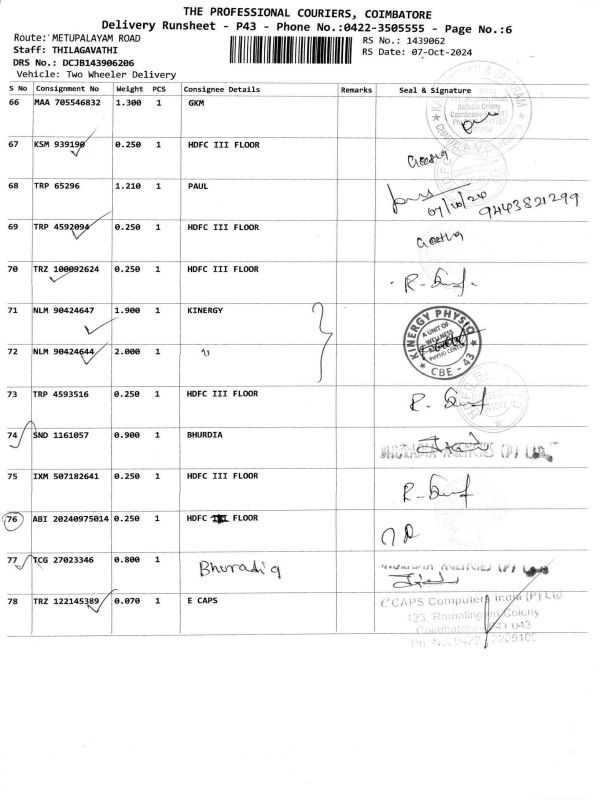 THE PROFESSIONAL COURIERS, COIMBATORE
Delivery Runsheet - P43 - Phone No.:0422-3505555 - Page No.:6
Route: METUPALAYAM ROAD
RS No.: 1439062
Staff: THILAGAVATHI
RS Date: 07-Oct-2024
DRS No.: DCJB143906206
Vehicle: Two Wheeler Delivery
S No Consignment No Weight PCS Consignee Details Remarks Seal & Signature
66 MAA 705546832 1.300 1 GKM
67 KSM 939190 0.250 1 HDFC III FLOOR
Geetha
68 TRP 65296 1.210 1 PAUL
07/10/24
9443821299
69 TRP 4592094 0.250 1 HDFC III FLOOR
Geetha
70 TRZ 100092624 0.250 1 HDFC III FLOOR
71 NLM 90424647 1.900 1 KINERGY
KINERGY PHYSIO
A UNIT OF
WELLNESS
PHYSIO CENTER
CBE - 43
72 NLM 90424644 2.000 1 "
73 TRP 4593516 0.250 1 HDFC III FLOOR
74 SND 1161057 0.900 1 BHURDIA
BHURADIA AGENCIES (P) Ltd.
75 IXM 507182641 0.250 1 HDFC III FLOOR
76 ABI 20240975014 0.250 1 HDFC FLOOR
77 TCG 27023346 0.800 1 Bhuradia
BHURADIA AGENCIES (P)
78 TRZ 122145389 0.070 1 E CAPS
CAPS Computers India (P) Ltd
123, Ramalingam Colony
Coimbatore 641 043
Ph No. 0422 2205100